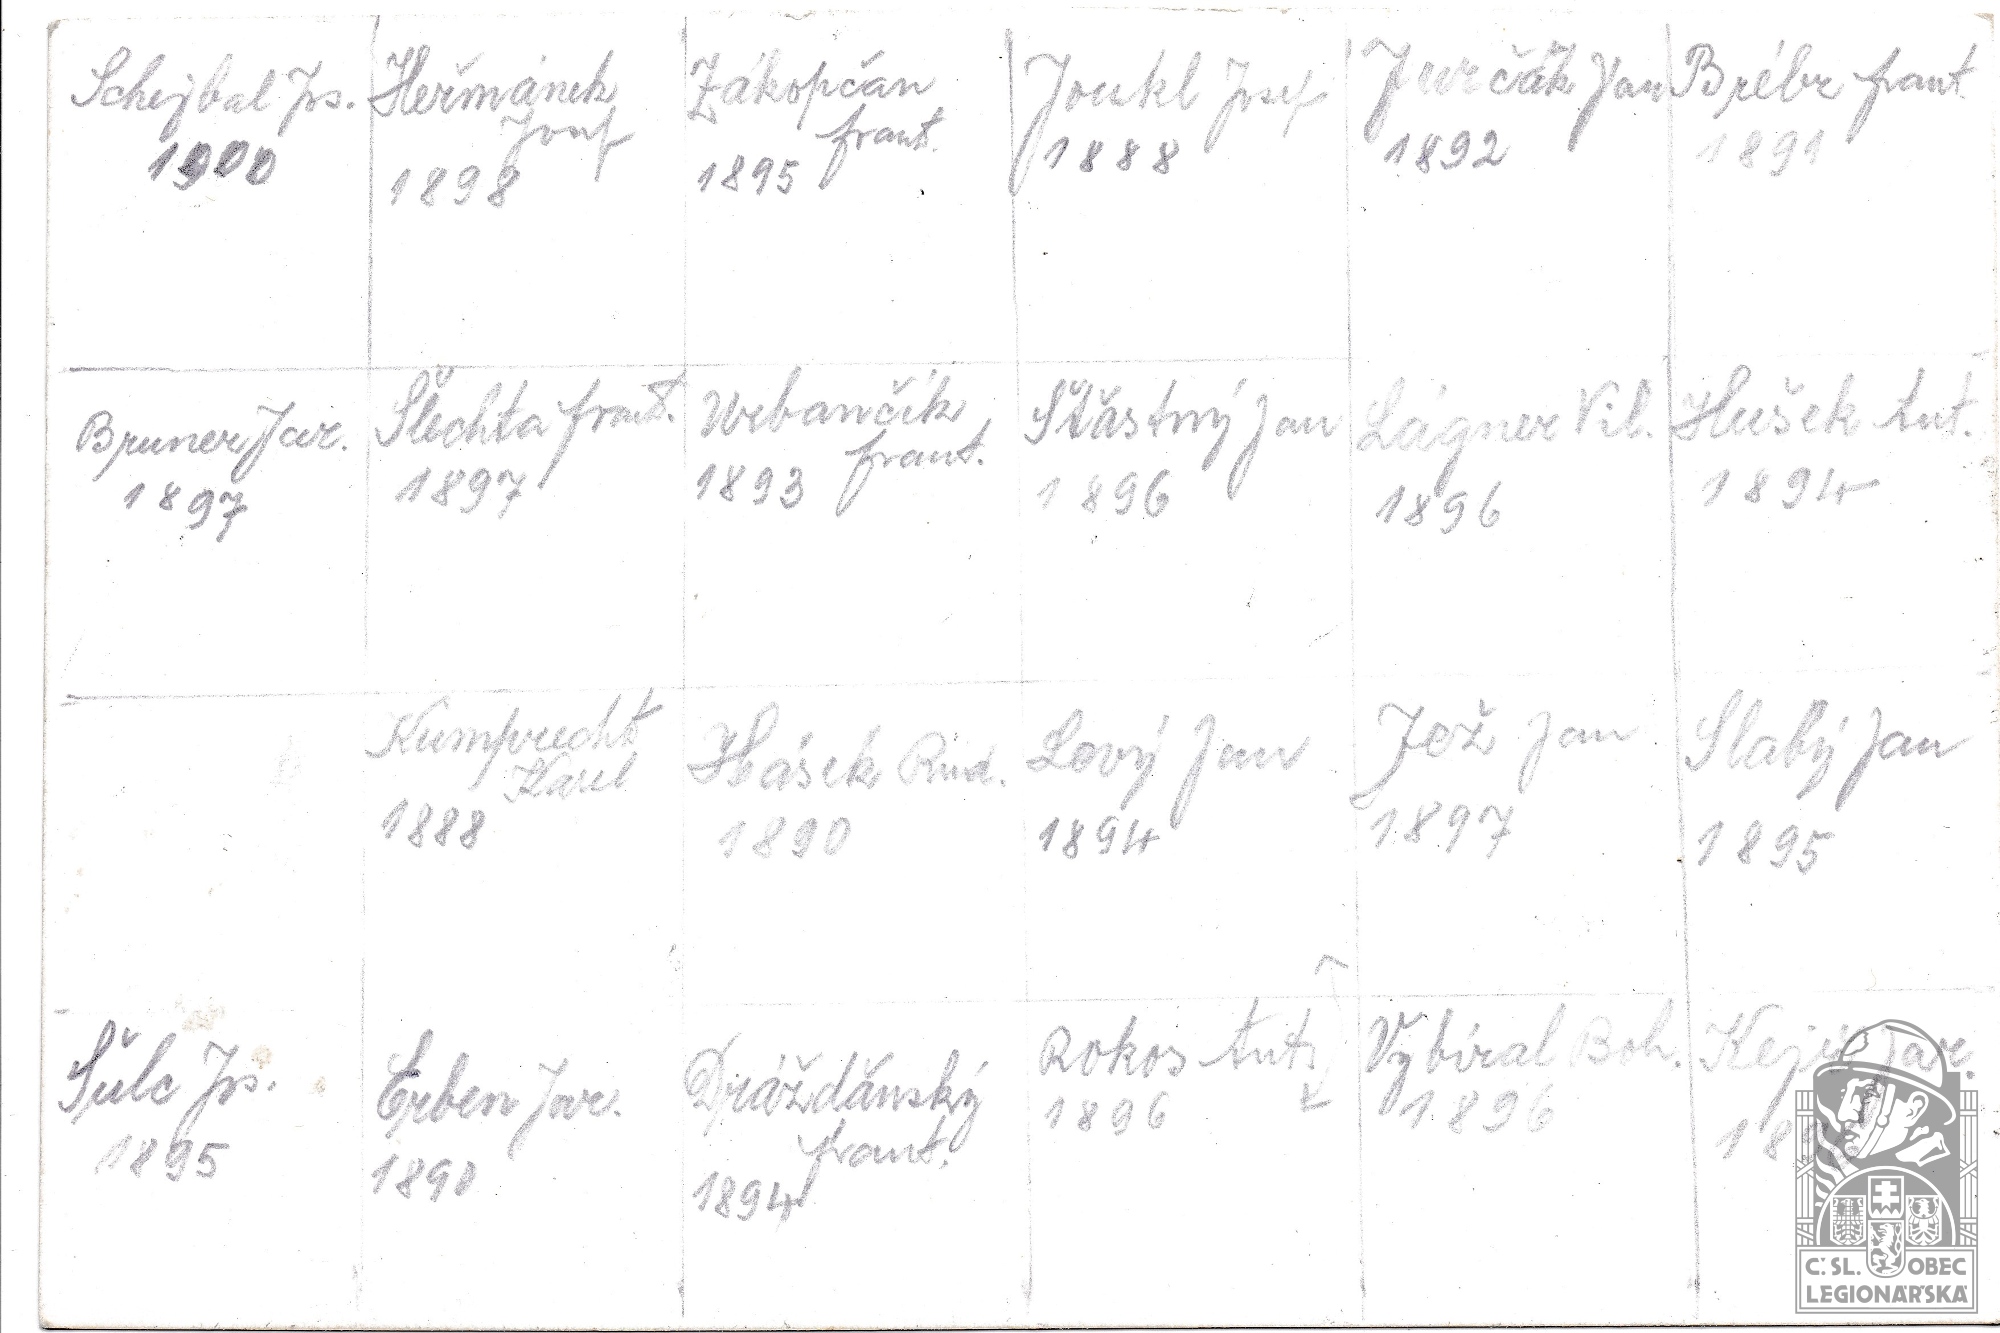 Schejbal Jos.
1900
Heřmánek
Josef
1898
Zákopčan
frant.
1895
Joukl Josef
1888
Jurčák Jan
1892
Brébr frant.
1891
Bruner Jar.
1897
Šlechta frant.
1897
Urbančík
frant.
1893
Šťastný Jan
1896
Lágner Vil.
1896
Hušek Ant.
1894
Kumprecht
Karel
1888
Hásek Rud.
1890
Lový Jan
1894
Jož Jan
1897
Slabý Jan
1895
Šulc Jos.
1895
Erben Jar.
1890
Drážďánský
frant.
1894
Rokos Ant.
1896
Vybíral Boh.
1896
Jar.
Č.SL. OBEC
LEGIONÁŘSKÁ